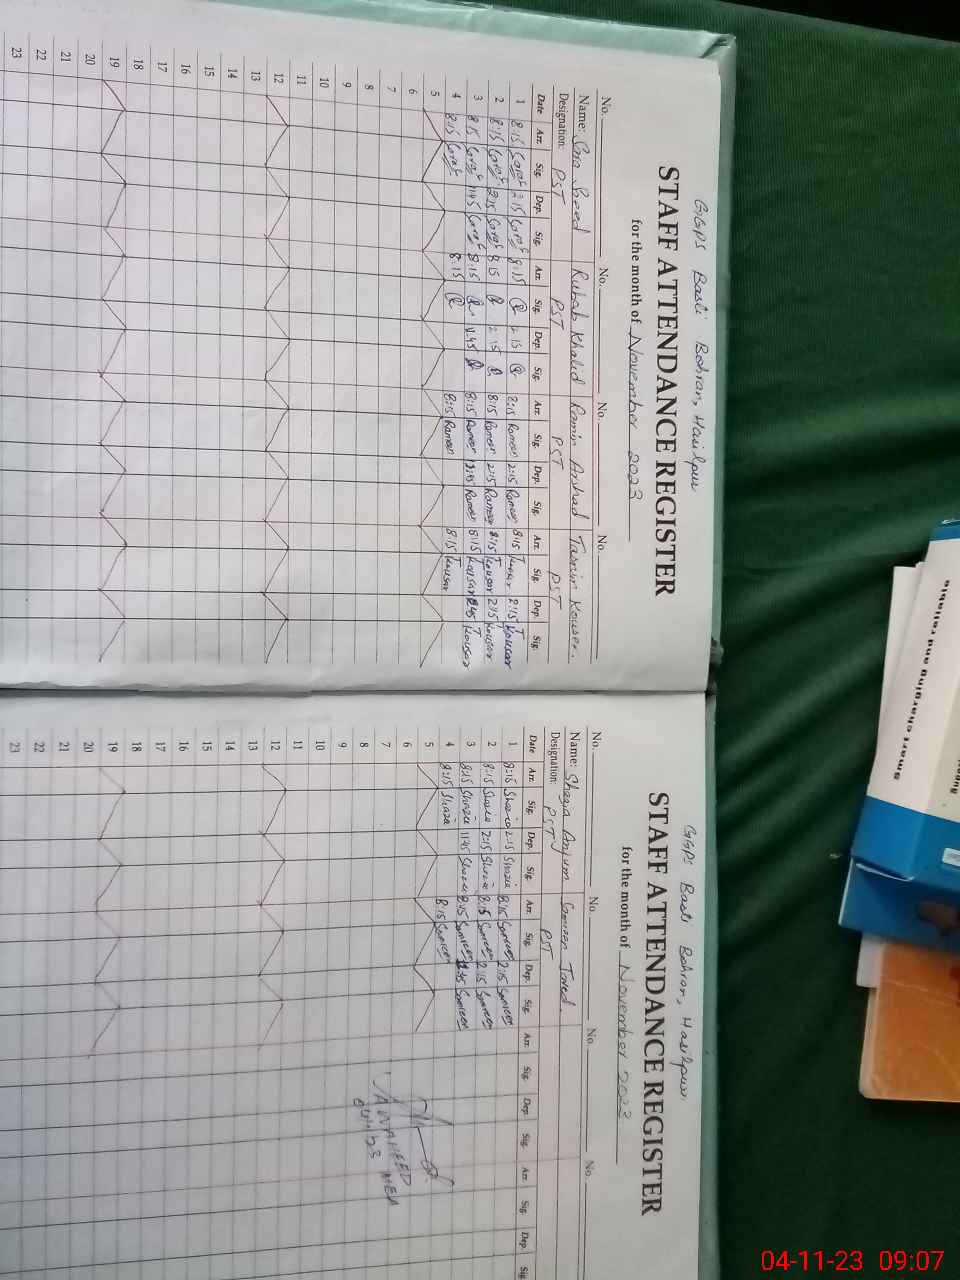 GGPS Basti Bohran, Hasilpur
STAFF ATTENDANCE REGISTER
for the month of November 2023
No. No. No. No.
Name: Sara Saeed Rubab Khalid Ramin Arshad Tasnim Kouser.
Designation: PST PST PST PST
Date Arr. Sig. Dep. Sig. Arr. Sig. Dep. Sig. Arr. Sig. Dep. Sig. Arr. Sig. Dep. Sig.
1 8:15 2:15 8:15 2 15 8:15 Rameen 2:15 Rameen 8:15 Kousar 2:15 Kousar
2 8:15 2:15 8 15 2 15 8:15 Rameen 2:15 Rameen 8:15 Kousar 2:15 Kousar
3 8:15 11:45 8:15 11.45 8:15 Rameen Rameen 8:15 Kousar Kousar
4 8:15 8:15 8:15 Rameen 8:15 Kousar
5
6
7
8
9
10
11
12
13
14
15
16
17
18
19
20
21
22
23
GGPS Basti Bohran, Hasilpur
STAFF ATTENDANCE REGISTER
for the month of November 2023
No. No. No. No.
Name: Shazia Anjum Samreen Javed.
Designation: PST PST
Date Arr. Sig. Dep. Sig. Arr. Sig. Dep. Sig. Arr. Sig. Dep. Sig. Arr. Sig. Dep. Sig.
1 8:15 Shazia 2:15 Shazia 8:15 Samreen 2:15 Samreen
2 8:15 Shazia 2:15 Shazia 8:15 Samreen 2:15 Samreen
3 8:15 Shazia 11:45 Shazia 8:15 Samreen Samreen
4 8:15 Shazia 8:15 Samreen
5
6
7
8
9
10
11
12
13
14
15
16
17
18
19
20
21
22
23
JAWAHEED MEA
smart charging and reliable
04-11-23 09:07